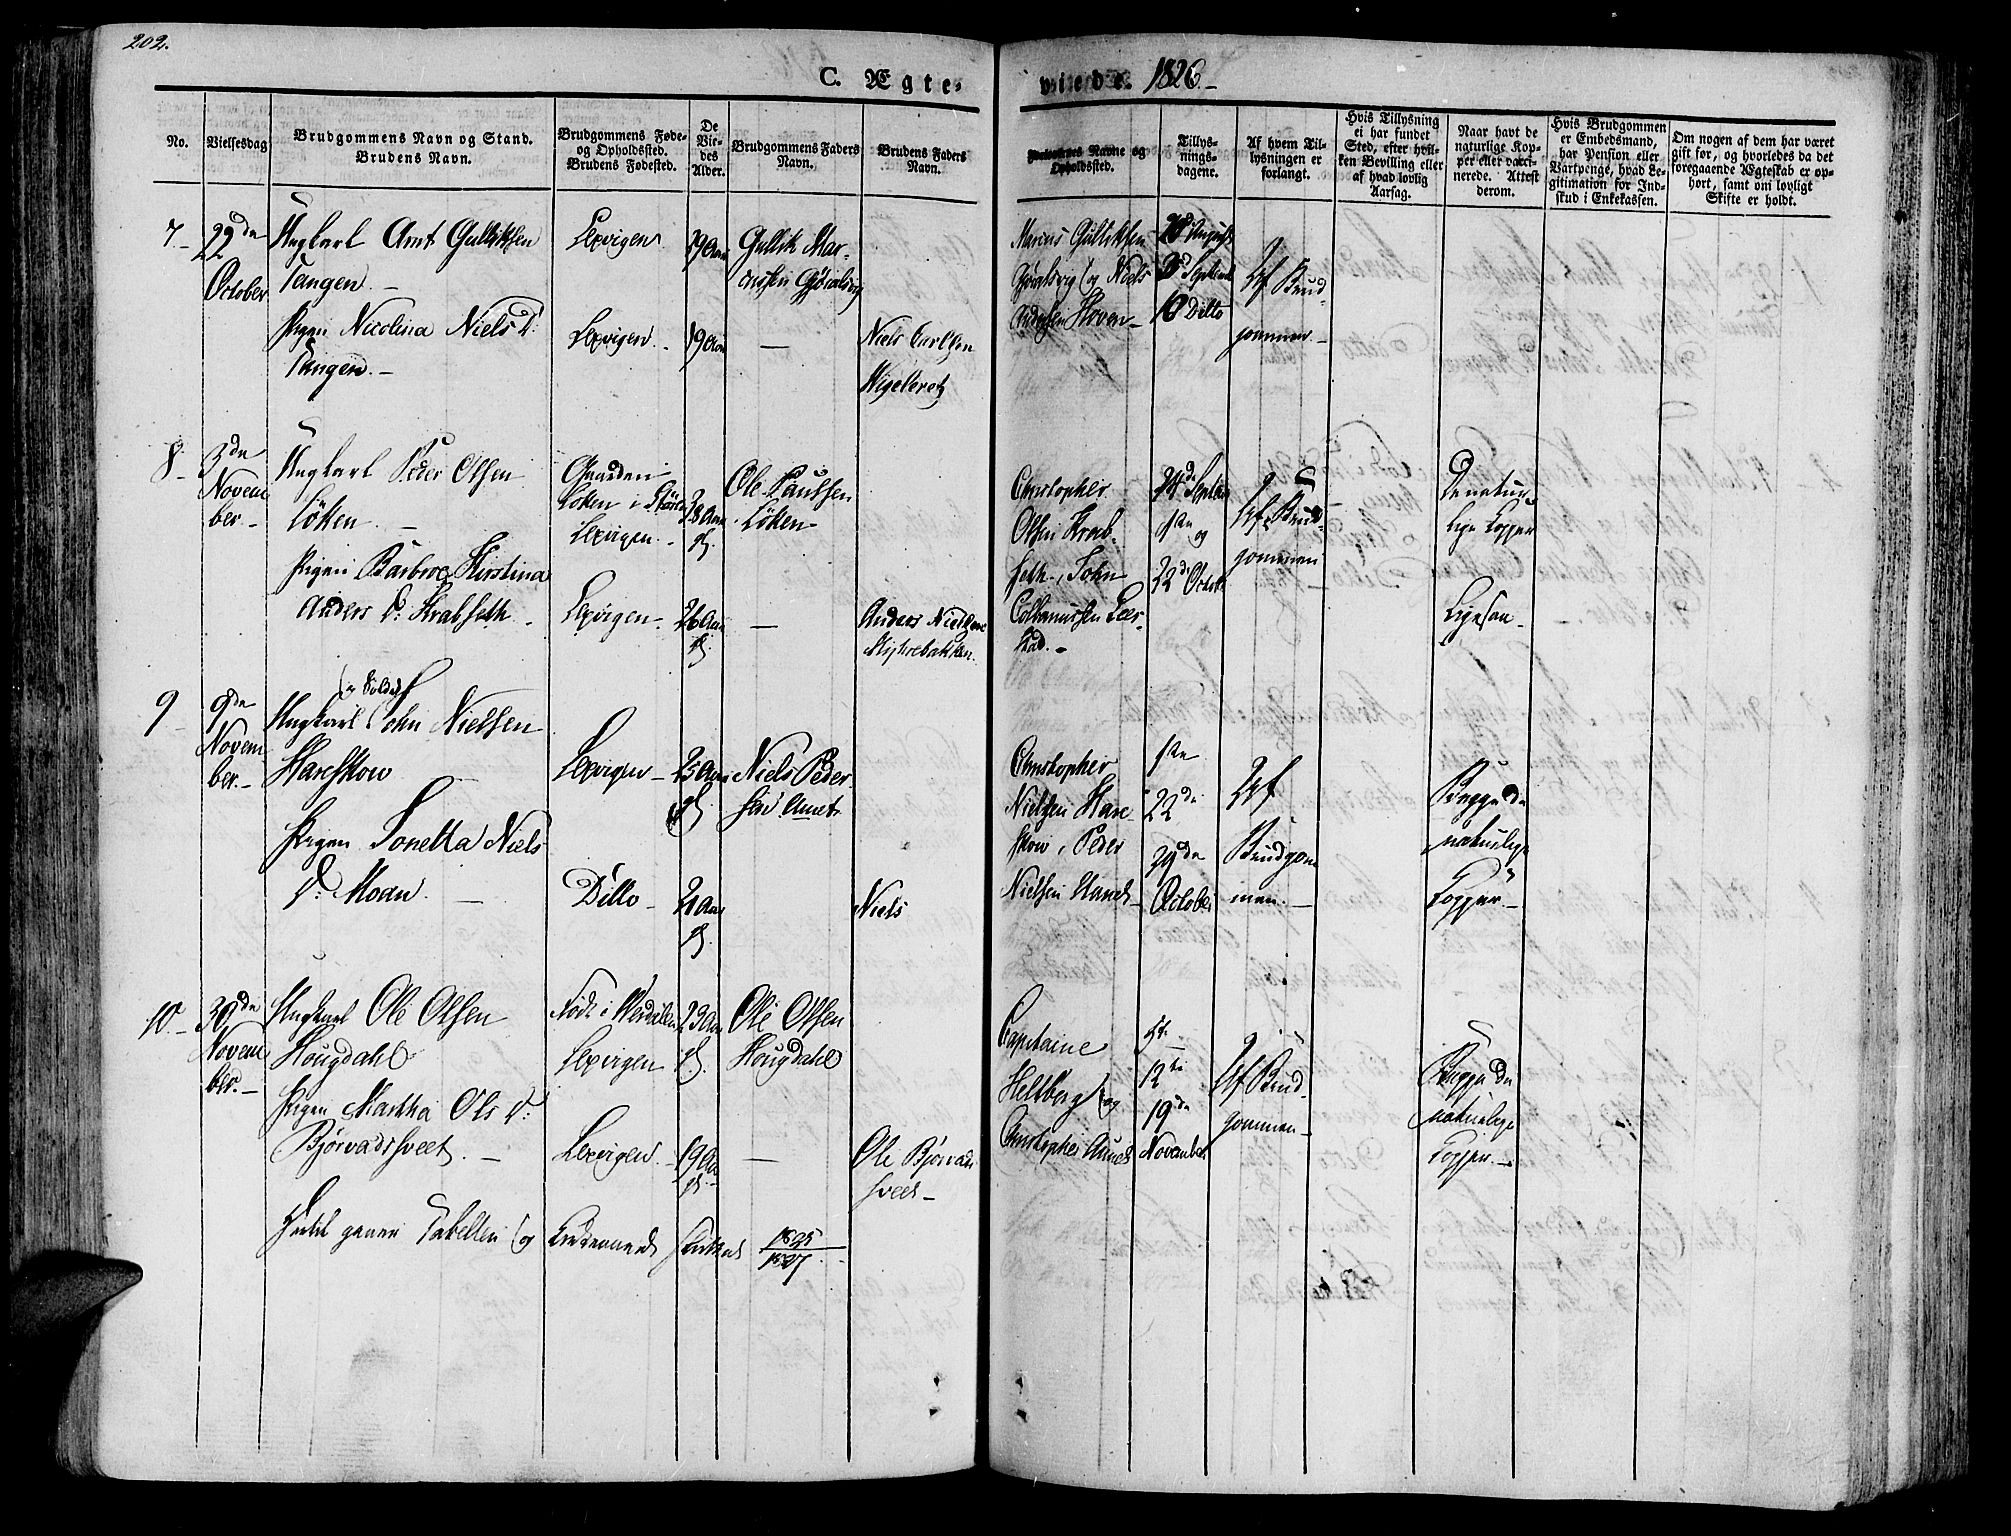 202.
C. Ægte-
viede. 1826.-
No.
Vielsesdag
Brudgommens Navn og Stand.
Brudens Navn.
Brudgommens Føde-
og Opholdssted.
Brudens Fødested.
De
Vie-
des
Alder.
Brudgommens Faders
Navn.
Brudens Faders
Navn.
Forlovernes Navne og
Opholdssted.
Tillys-
nings-
dagene.
Af hvem Til-
lysningen er
forlangt.
Hvis Tillysning
ei har fundet
Sted, efter hvil-
ken Bevilling eller
af hvad lovlig
Aarsag.
Naar havt de
naturlige Kop-
per eller vacci-
nerede. Attest
derom.
Hvis Brudgommen
er Embedsmand,
har Pension eller
Vartpenge, hvad Le-
gitimation for Ind-
skud i Enkekassen.
Om nogen af dem har været
gift før, og hvorledes da det
foregaaende Ægteskab er op-
hørt, samt om lovligt
Skifte er holdt.
7-
22de
October
Ungkarl Arnt Gulliksen
Tangen. -
Pigen Nicolina Niels D:
Tangen. -
Lexvigen
Lexvigen. -
19 Aar
Gullik Mar-
cussen
-
Niels Carlsen
Marcus Gulliksen
og Niels
Andersen Hoven-
August
Septemb
10 Ditto
Af Brud-
gommen -
8-
3de
Novem
ber-
Ungkarl Peder Olsen
Löken. -
Pigen Barbroe Kirstina
Anders D: Krabseth -
Gaarden
Löken i
Lexvigen. -
Lexvigen -
28 Aar
26 Aar
Ole Paulsen
Löken
-
Anders Nielsen
Myhrebakken.
Christopher
Olsen Krab-
seth, John
Leer-
stad. -
24de Septem
1ste og
22de Octob
Af Brud-
gommen
De natur-
lige Kopper
Ligesaa -
9-
9de
Novem
ber.-
og Soldat
Ungkarl John Nielsen
Hareskow
Pigen Tonetta Niels
D: Moan. -
Lexvigen -
Ditto -
25 Aar
21 Aar
Niels Peder
sen Aunet
Niels
Christopher
Nielsen Hare
skow, Peder
Nielsen Haresk
1ste
22de
29de
October
Af
Brudgom
men. -
Begge de
naturlige
Kopper. -
10-
30de
Novem
ber.-
Ungkarl Ole Olsen
Hougdahl
Pigen Martha Ols D:
Bjørvadsveet. -
Født i Werdalen
Lexvigen
Lexvigen. -
23 Aar
19 Aar
Ole Olsen
Hougdahl
-
Ole Bjørvad
sveet-
Capitaine
Heltberg og
Christopher Aunet
5te
12te
19de
November
Af Brud-
gommen -
Begge de
naturlige
Kopper. -
Indtil gaaer Tabellen og
1825
1827